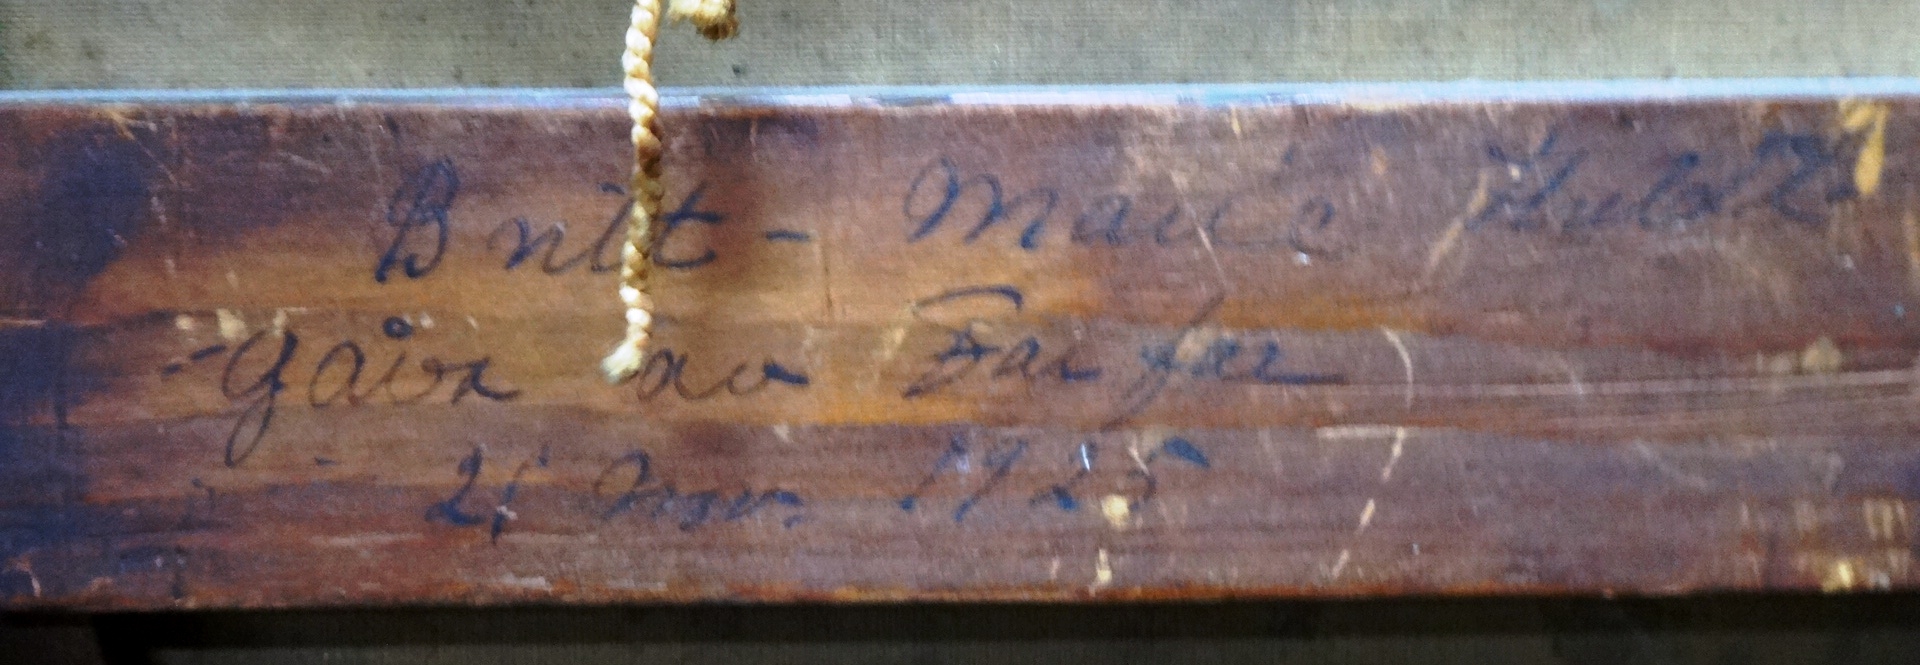 Britt - Marie Huldt
- Gåva av Farfar
21 Nov. 1925